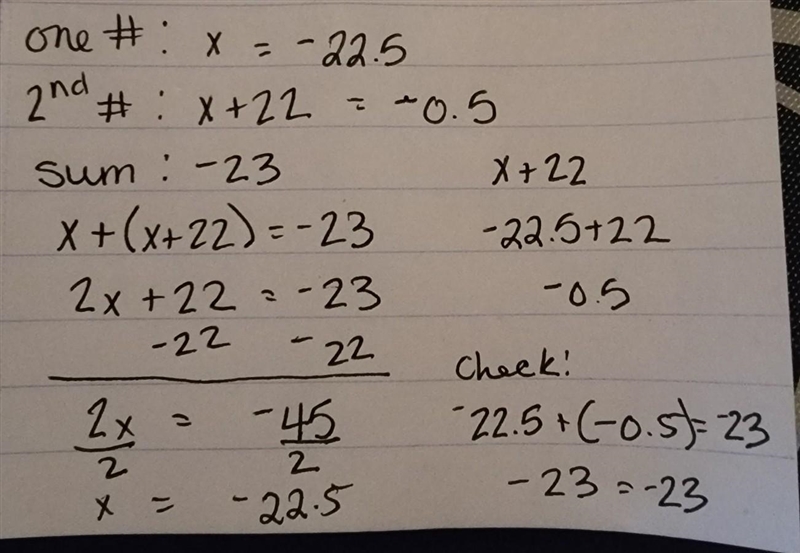 one #: x = -22.5
2nd #: x+22 = -0.5
sum: -23
x+(x+22)=-23
2x+22 = -23
-22 -22
2x = -45
2 2
x = -22.5
x+22
-22.5+22
-0.5
Check!
-22.5+(-0.5)=-23
-23=-23